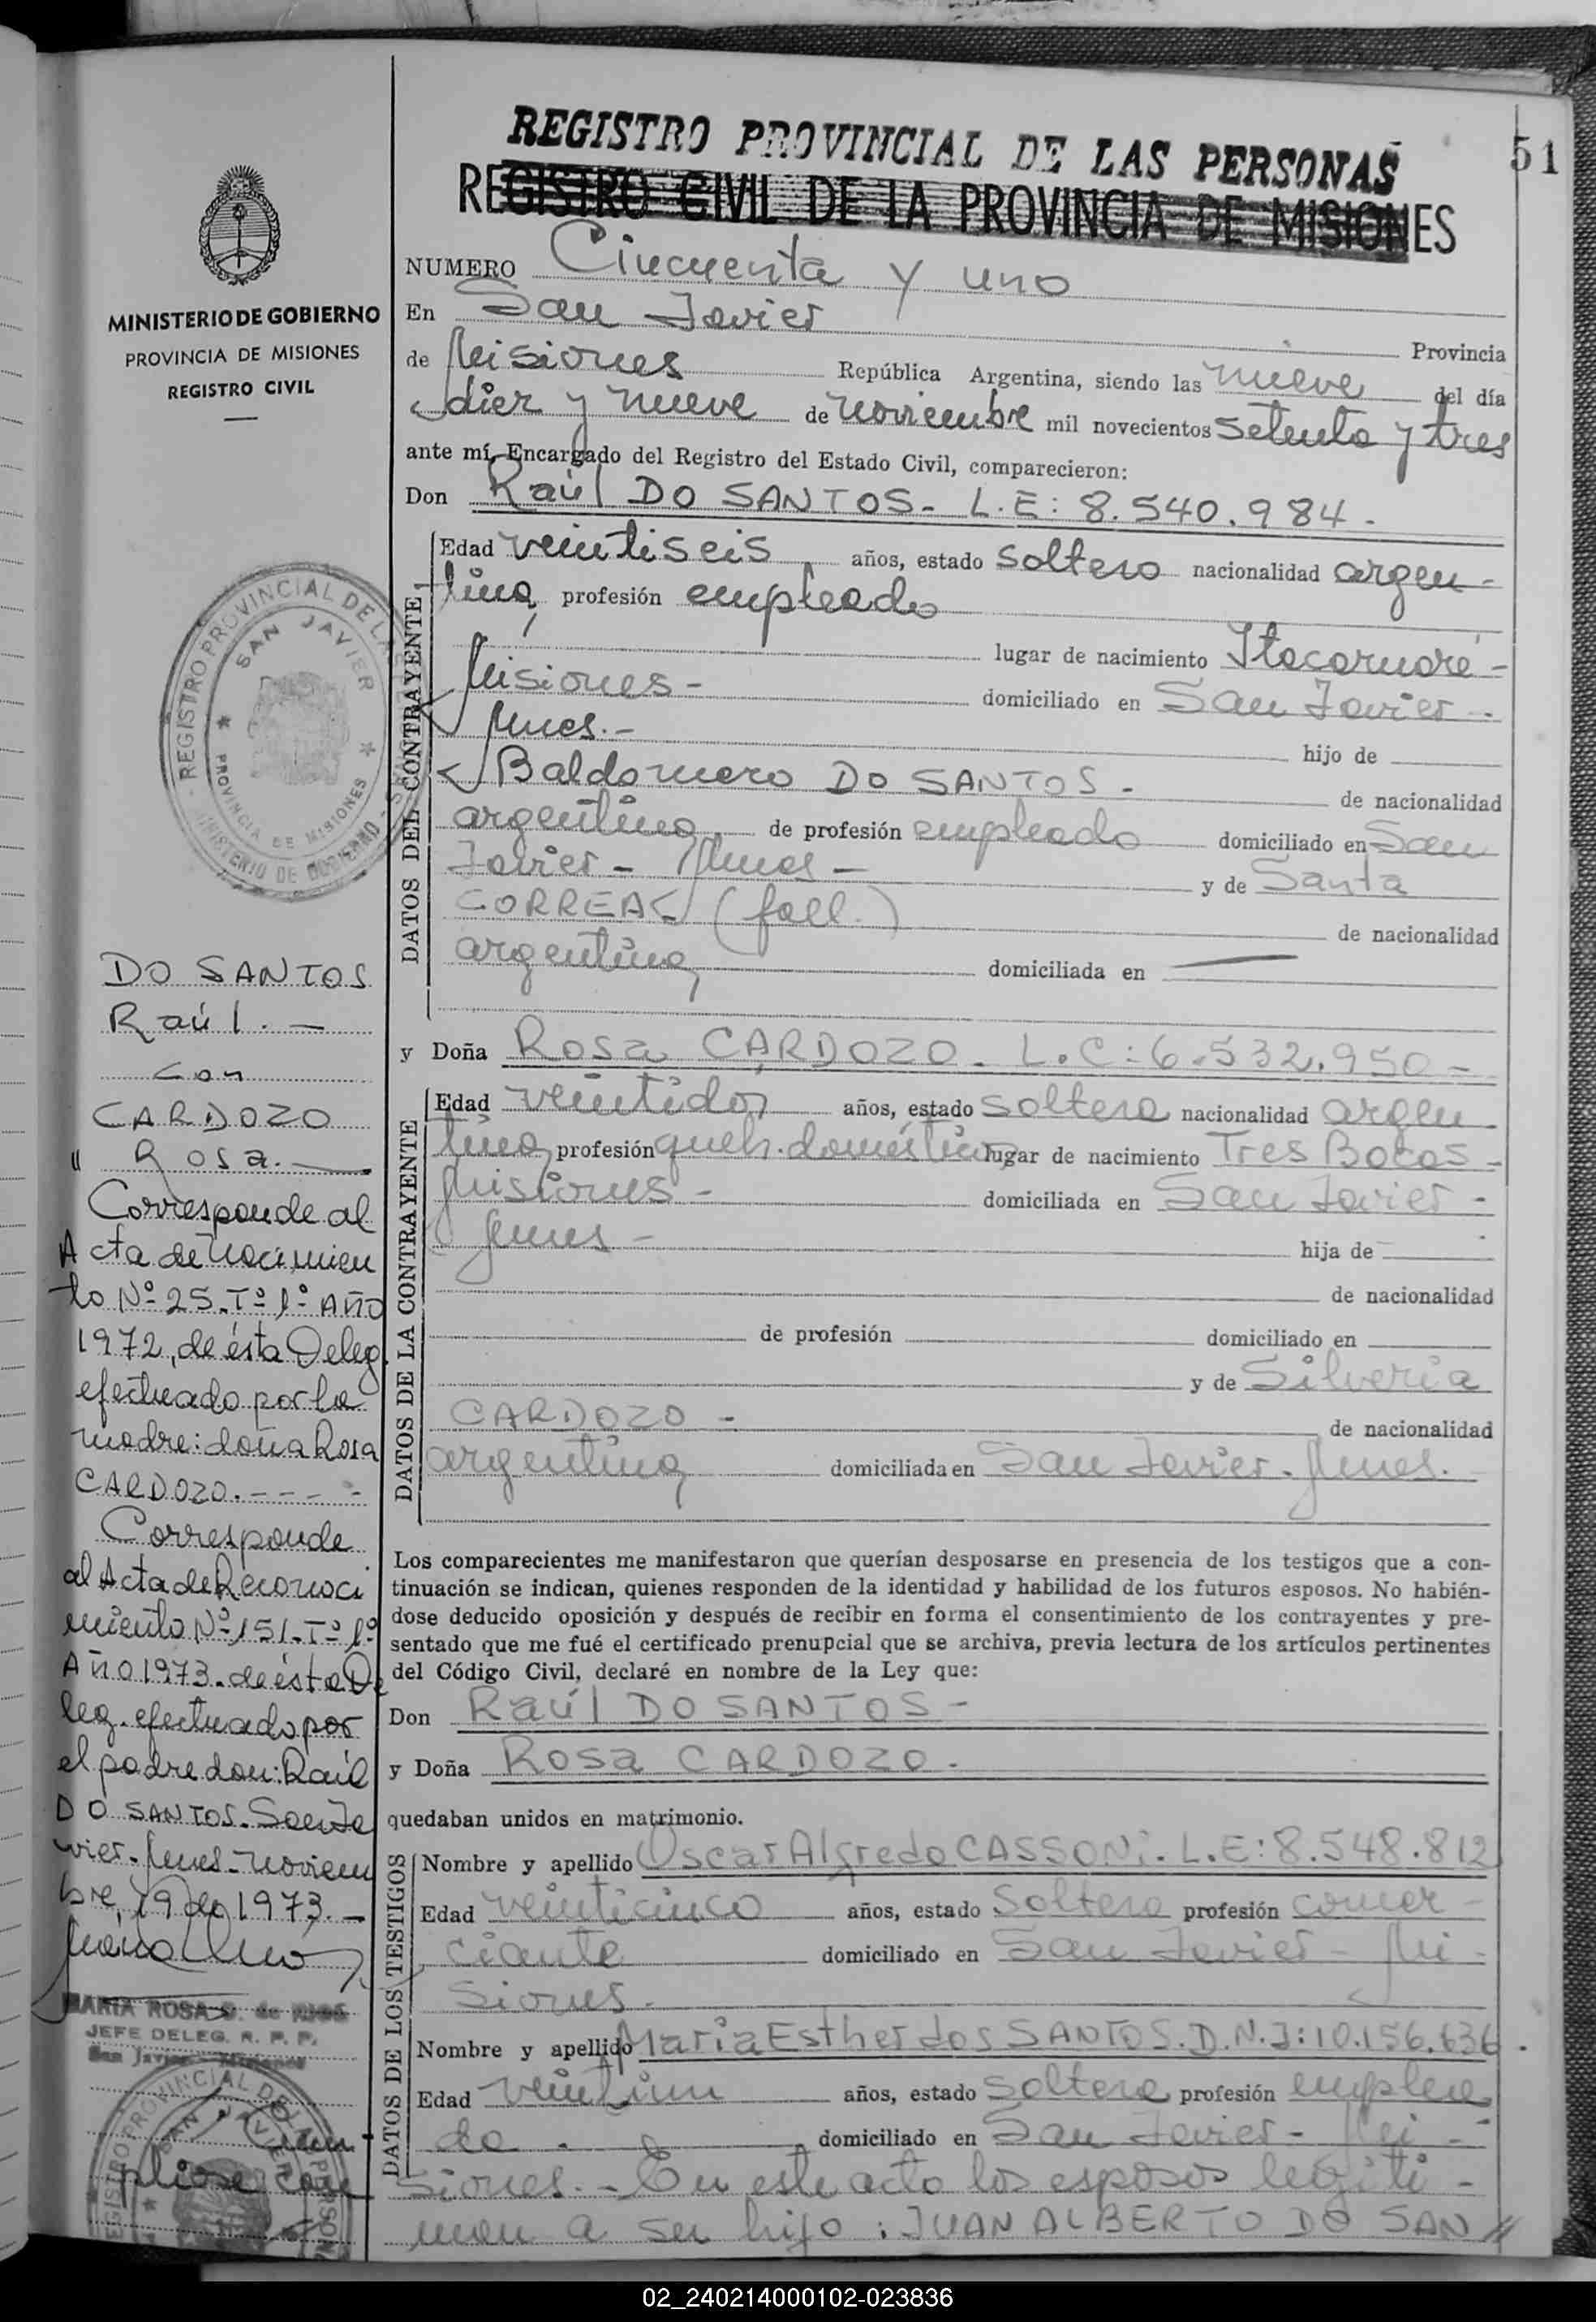 51
REGISTRO PROVINCIAL DE LAS PERSONAS
REGISTRO CIVIL DE LA PROVINCIA DE MISIONES
MINISTERIO DE GOBIERNO
PROVINCIA DE MISIONES
REGISTRO CIVIL
NUMERO Cincuenta y uno
En San Javier
Provincia
de Misiones República Argentina, siendo las nueve del día
diez y nueve de noviembre mil novecientos setenta y tres
ante mí, Encargado del Registro del Estado Civil, comparecieron:
Don Raúl DO SANTOS- L.E: 8.540.984.-
DATOS DEL CONTRAYENTE
Edad veintiseis años, estado soltero nacionalidad argen-
tina, profesión empleado
lugar de nacimiento Itacaruaré-
Misiones- domiciliado en San Javier-
Mnes.- hijo de
Baldomero DO SANTOS- de nacionalidad
argentina, de profesión empleado domiciliado en San
Javier- Mnes- y de Santa
CORREA (fall.) de nacionalidad
argentina, domiciliada en
y Doña Rosa CARDOZO- L.C: 6.532.950-
DATOS DE LA CONTRAYENTE
Edad veintidos años, estado soltera nacionalidad argen
tina, profesión queh. doméstica lugar de nacimiento Tres Bocas-
Misiones- domiciliada en San Javier-
Mnes- hija de
de nacionalidad
de profesión domiciliado en
y de Silveria
CARDOZO- de nacionalidad
argentina, domiciliada en San Javier. Mnes.
Los comparecientes me manifestaron que querían desposarse en presencia de los testigos que a con-
tinuación se indican, quienes responden de la identidad y habilidad de los futuros esposos. No habién-
dose deducido oposición y después de recibir en forma el consentimiento de los contrayentes y pre-
sentado que me fué el certificado prenupcial que se archiva, previa lectura de los artículos pertinentes
del Código Civil, declaré en nombre de la Ley que:
Don Raúl DO SANTOS-
y Doña Rosa CARDOZO.
quedaban unidos en matrimonio.
DATOS DE LOS TESTIGOS
Nombre y apellido Oscar Alfredo CASSONi. L.E: 8.548.812
Edad veinticinco años, estado soltero profesión comer-
ciante domiciliado en San Javier- Mi-
siones.
Nombre y apellido Maria Esther dos SANTOS. D.N.I: 10.156.636.
Edad veintiun años, estado soltera profesión emplea
da. domiciliado en San Javier- Mi-
siones.- En este acto los esposos legiti-
man a su hijo: JUAN ALBERTO DO SAN//
REGISTRO PROVINCIAL DE LA
SAN JAVIER
PROVINCIA DE MISIONES
MINISTERIO DE GOBIERNO
DO SANTOS
Raúl.-
con
CARDOZO
" Rosa.-
Corresponde al
Acta de Nacimien
to Nº 25.Tº 1º Año
1972, de ésta Deleg.
efectuado por la
madre: doña Rosa
CARDOZO.----
Corresponde
al Acta de Reconoci
miento Nº 151.Tº 1º
Año 1973. de ésta De
leg. efectuado por
el padre don: Raúl
DO SANTOS. San Ja
vier. Mnes- noviem
bre, 19 de 1973.-
MARIA ROSA S. de RIOS
JEFE DELEG. R. P. P.
San Javier - Misiones
02_240214000102-023836